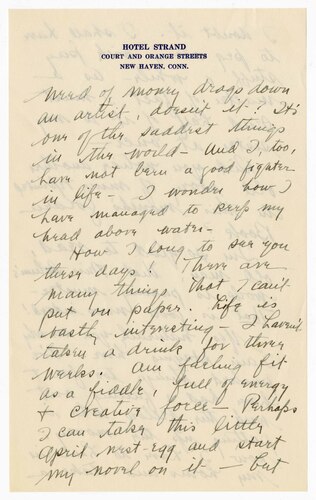 HOTEL STRAND
COURT AND ORANGE STREETS
NEW HAVEN, CONN.
need of money drags down
an artist, doesn't it? It's
one of the saddest things
in the world – and I, too,
have not been a good fighter
in life – I wonder how I
have managed to keep my
head above water –
How I long to see you
these days! There are
many things that I can't
put on paper. Life is
vastly interesting – I haven't
taken a drink for three
weeks. Am feeling fit
as a fiddle, full of energy
+ creative force – Perhaps
I can take this little
April nest-egg and start
my novel on it – but